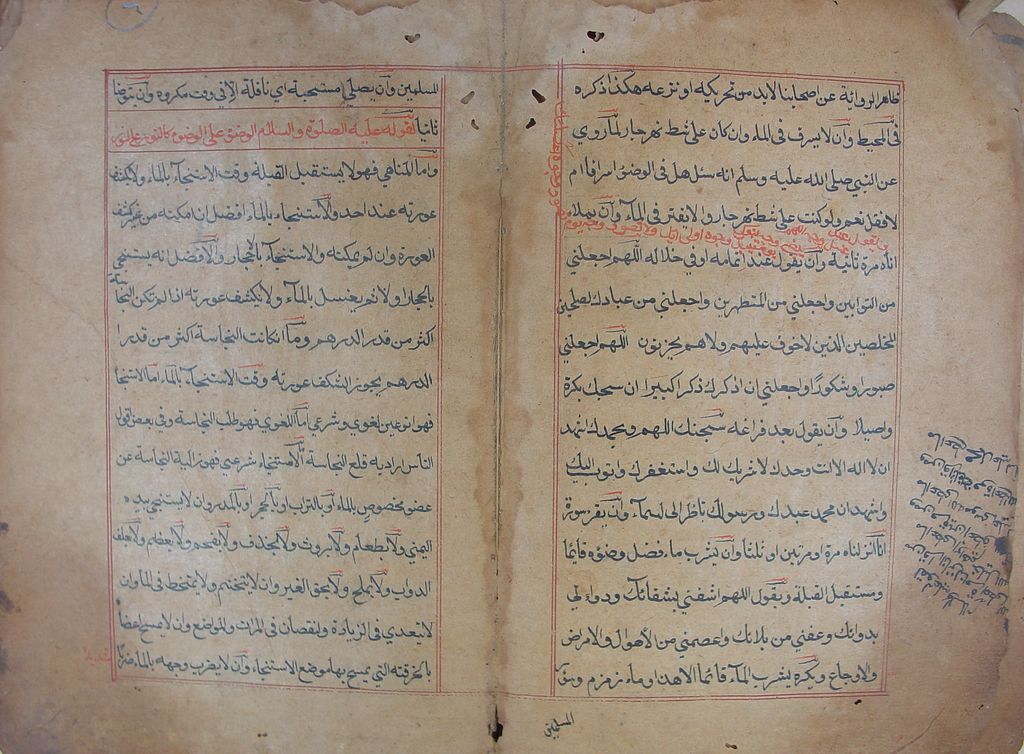 ظاهر الرواية عن اصحابنا لابد من تحريكه او نزعه هكذا ذكره
فى المحيط وان لا يسرف فى الماء وان كان على شط نهر جار لما روي
عن النبي صلى الله عليه وسلم انه سئل هل في الوضؤ اسراف ام
لا فقل نعم ولو كنت على شط نهر جار ولا يفتر فى المآء وان يملاء
اناءه مرة ثانية وان يقول عند اتمامه او في خلاله اللهم اجعلني
من التوابين واجعلني من المتطهرين واجعلني من عبادك الصالحين
المخلصين الذين لا خوف عليهم ولا هم يحزنون اللهم اجعلني
صبورا وشكورا واجعلني ان اذكرك ذكرا كبيرا ان سبحك بكرة
واصيلا وان يقول بعد فراغه سبحنك اللهم وبحمدك اشهد
ان لا اله الا انت وحدك لا شريك لك واستغفرك واتوب اليك
واشهد ان محمد عبدك ورسولك ناظر الى السمآء وان يقرء سورة
انا انزلناه مرة او مرتين او ثلثا وان يشرب ما فضل وضؤه قائما
ومستقبل القبلة ويقول اللهم اشفني بشفائك ودوا لي
بدوائك وعفني من بلائك واعصمني من الاهوال والامراض
والاوجاع ويكره يشرب المآء قائما الا هذا وماء زمزم
المسلمين
للمسلمين وان يصلي مستحبة اي نافلة الا في وقت مكروه وان يتوضا
ثانيا لقوله عليه الصلوة والسلام الوضؤ على الوضوء كالنور على النور
واما المناهي فهو لا يستقبل القبلة وقت الاستنجآء بالماء ولا يكشف
عورته عند احد ولا استنجاء بالماء افضل ان امكنه من غير كشف
العورة وان لم يمكنه والاستنجآء بالاحجار والافضل انه يستنجي
بالحجار ولا ثم يغتسل بالمآء ولا يكشف عورته اذا لم تكن النجاسة
اكثر من قدر الدرهم وما اذا كانت النجاسة اكثر من قدر
الدرهم يجوز الكشف عورته وقت الاستنجآء بالماء اما الاستنجا
فهو نوعين لغوي وشرعي اما اللغوي فهو طلب النجاسة وفي بعض اقول
النآس يراد به قلع النجاسة والاستنجاء شرعي فهو زالية النجاسة عن
عضو مخصوص بالماء او بالتراب او بالحجر او بالمدر وان لا يستنجي بيده
اليمنى ولا بطعام ولا بروث ولا بخذف ولا بفحم ولا بعظم ولا بعلف
الدواب ولا بملح ولا بحق الغير وان لا يتنخم ولا يمتخط فى الماء وان
لا يتعدي فى الزيادة والنقصان فى المرات والمواضع وان لا يمسح اعضا
بالخرقة التي يمسح بها موضع الاستنجاء وان لا يضرب وجهه بالماء ضربا
شديدا